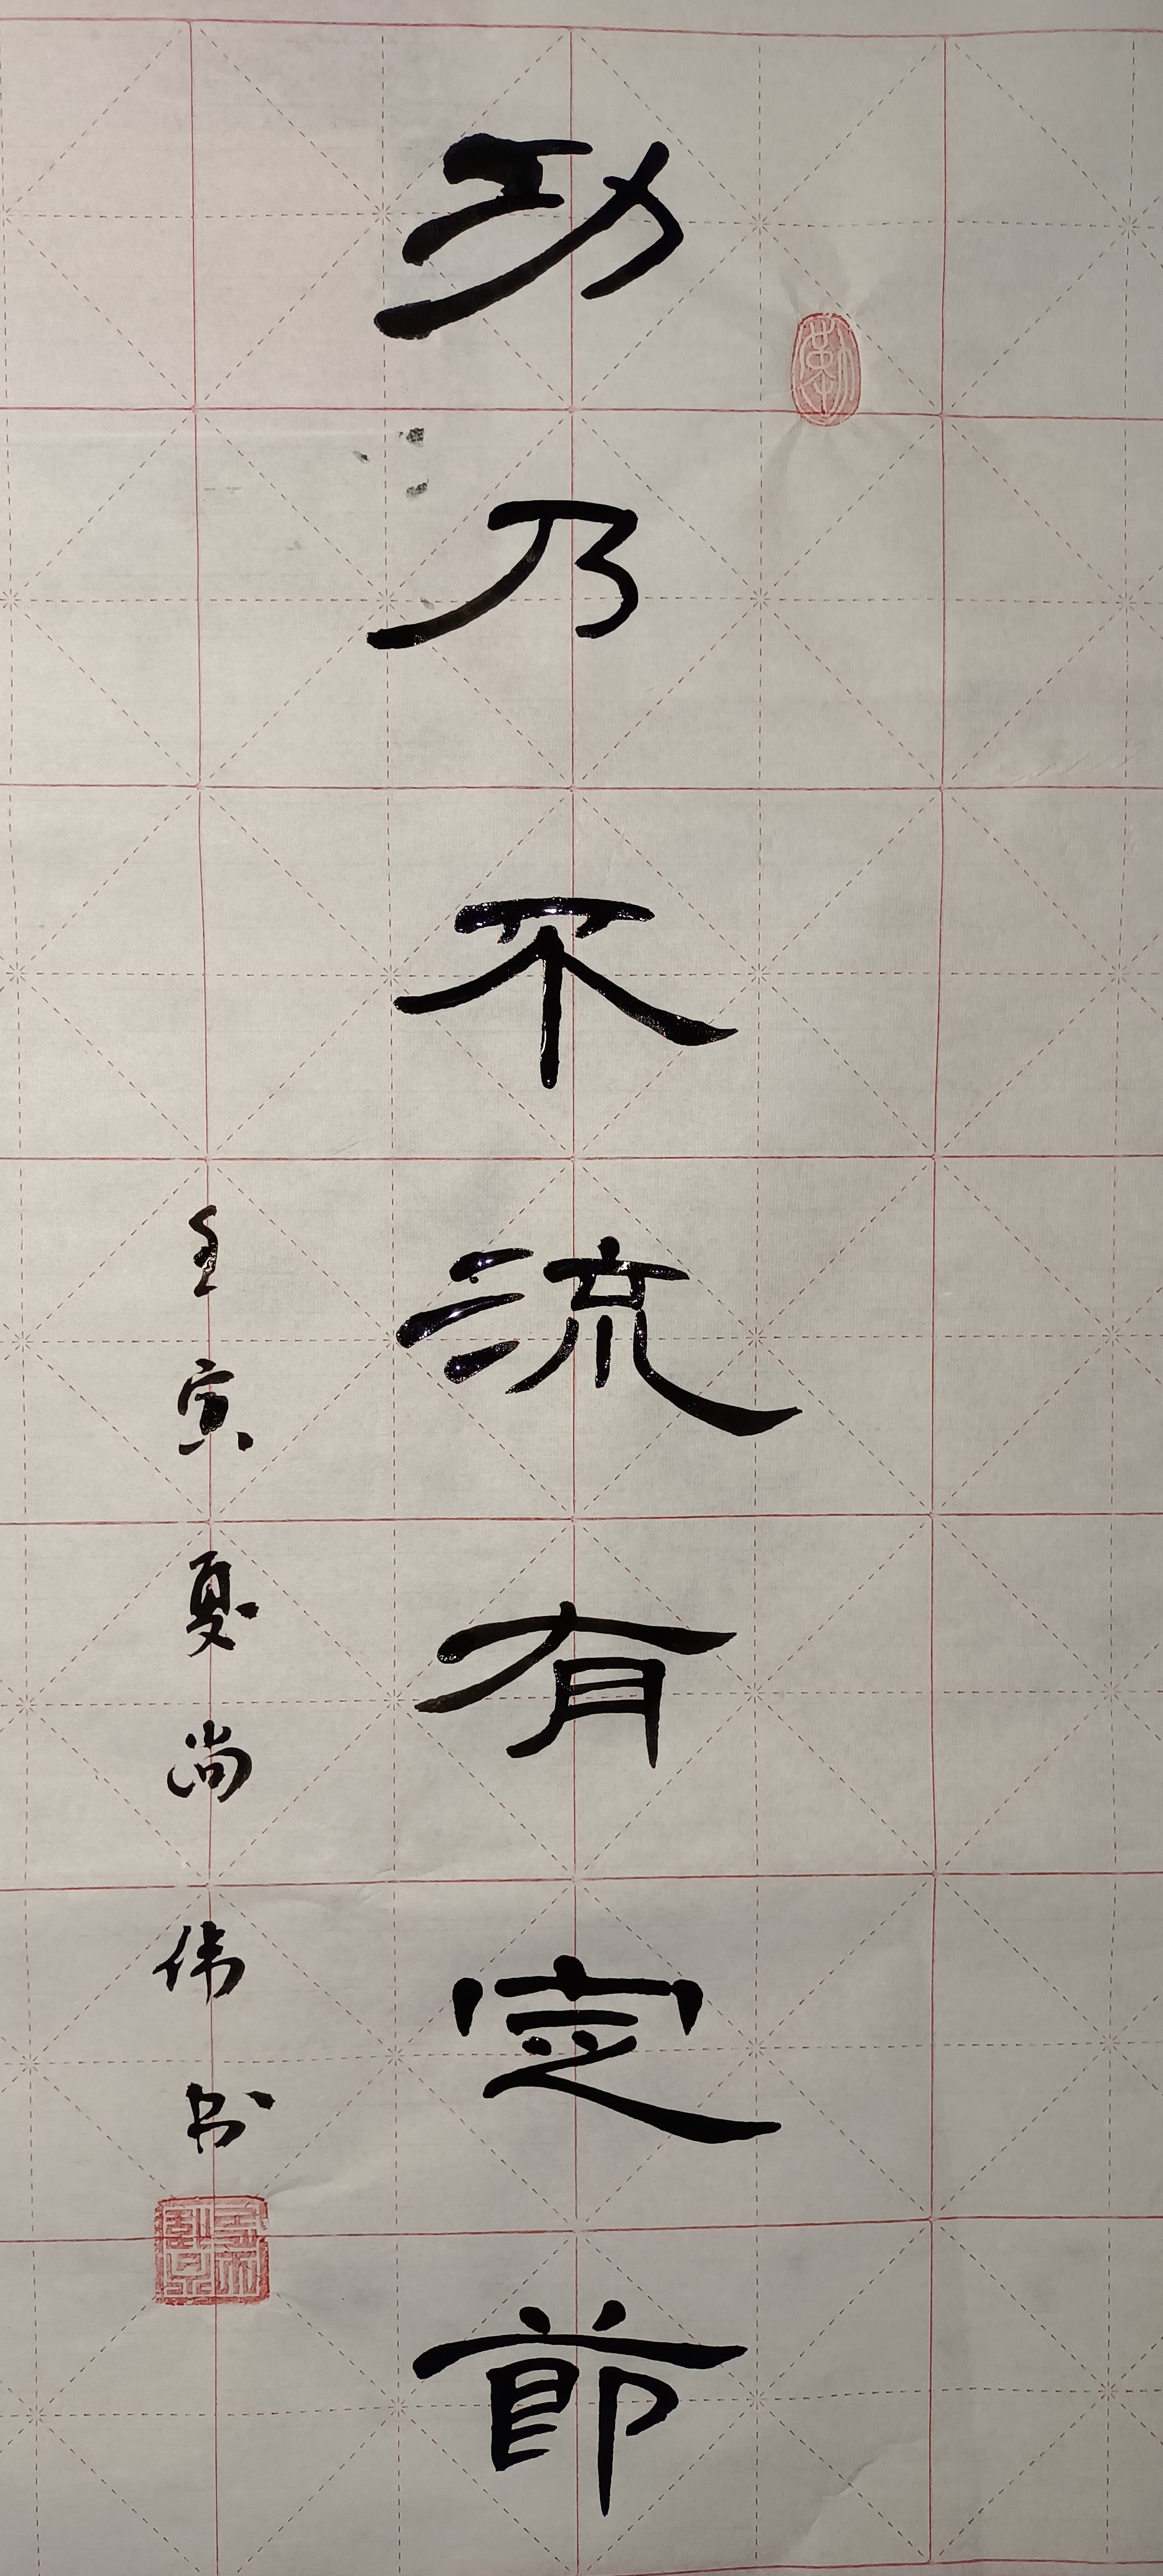 功乃不流有定節
壬寅夏尚伟书